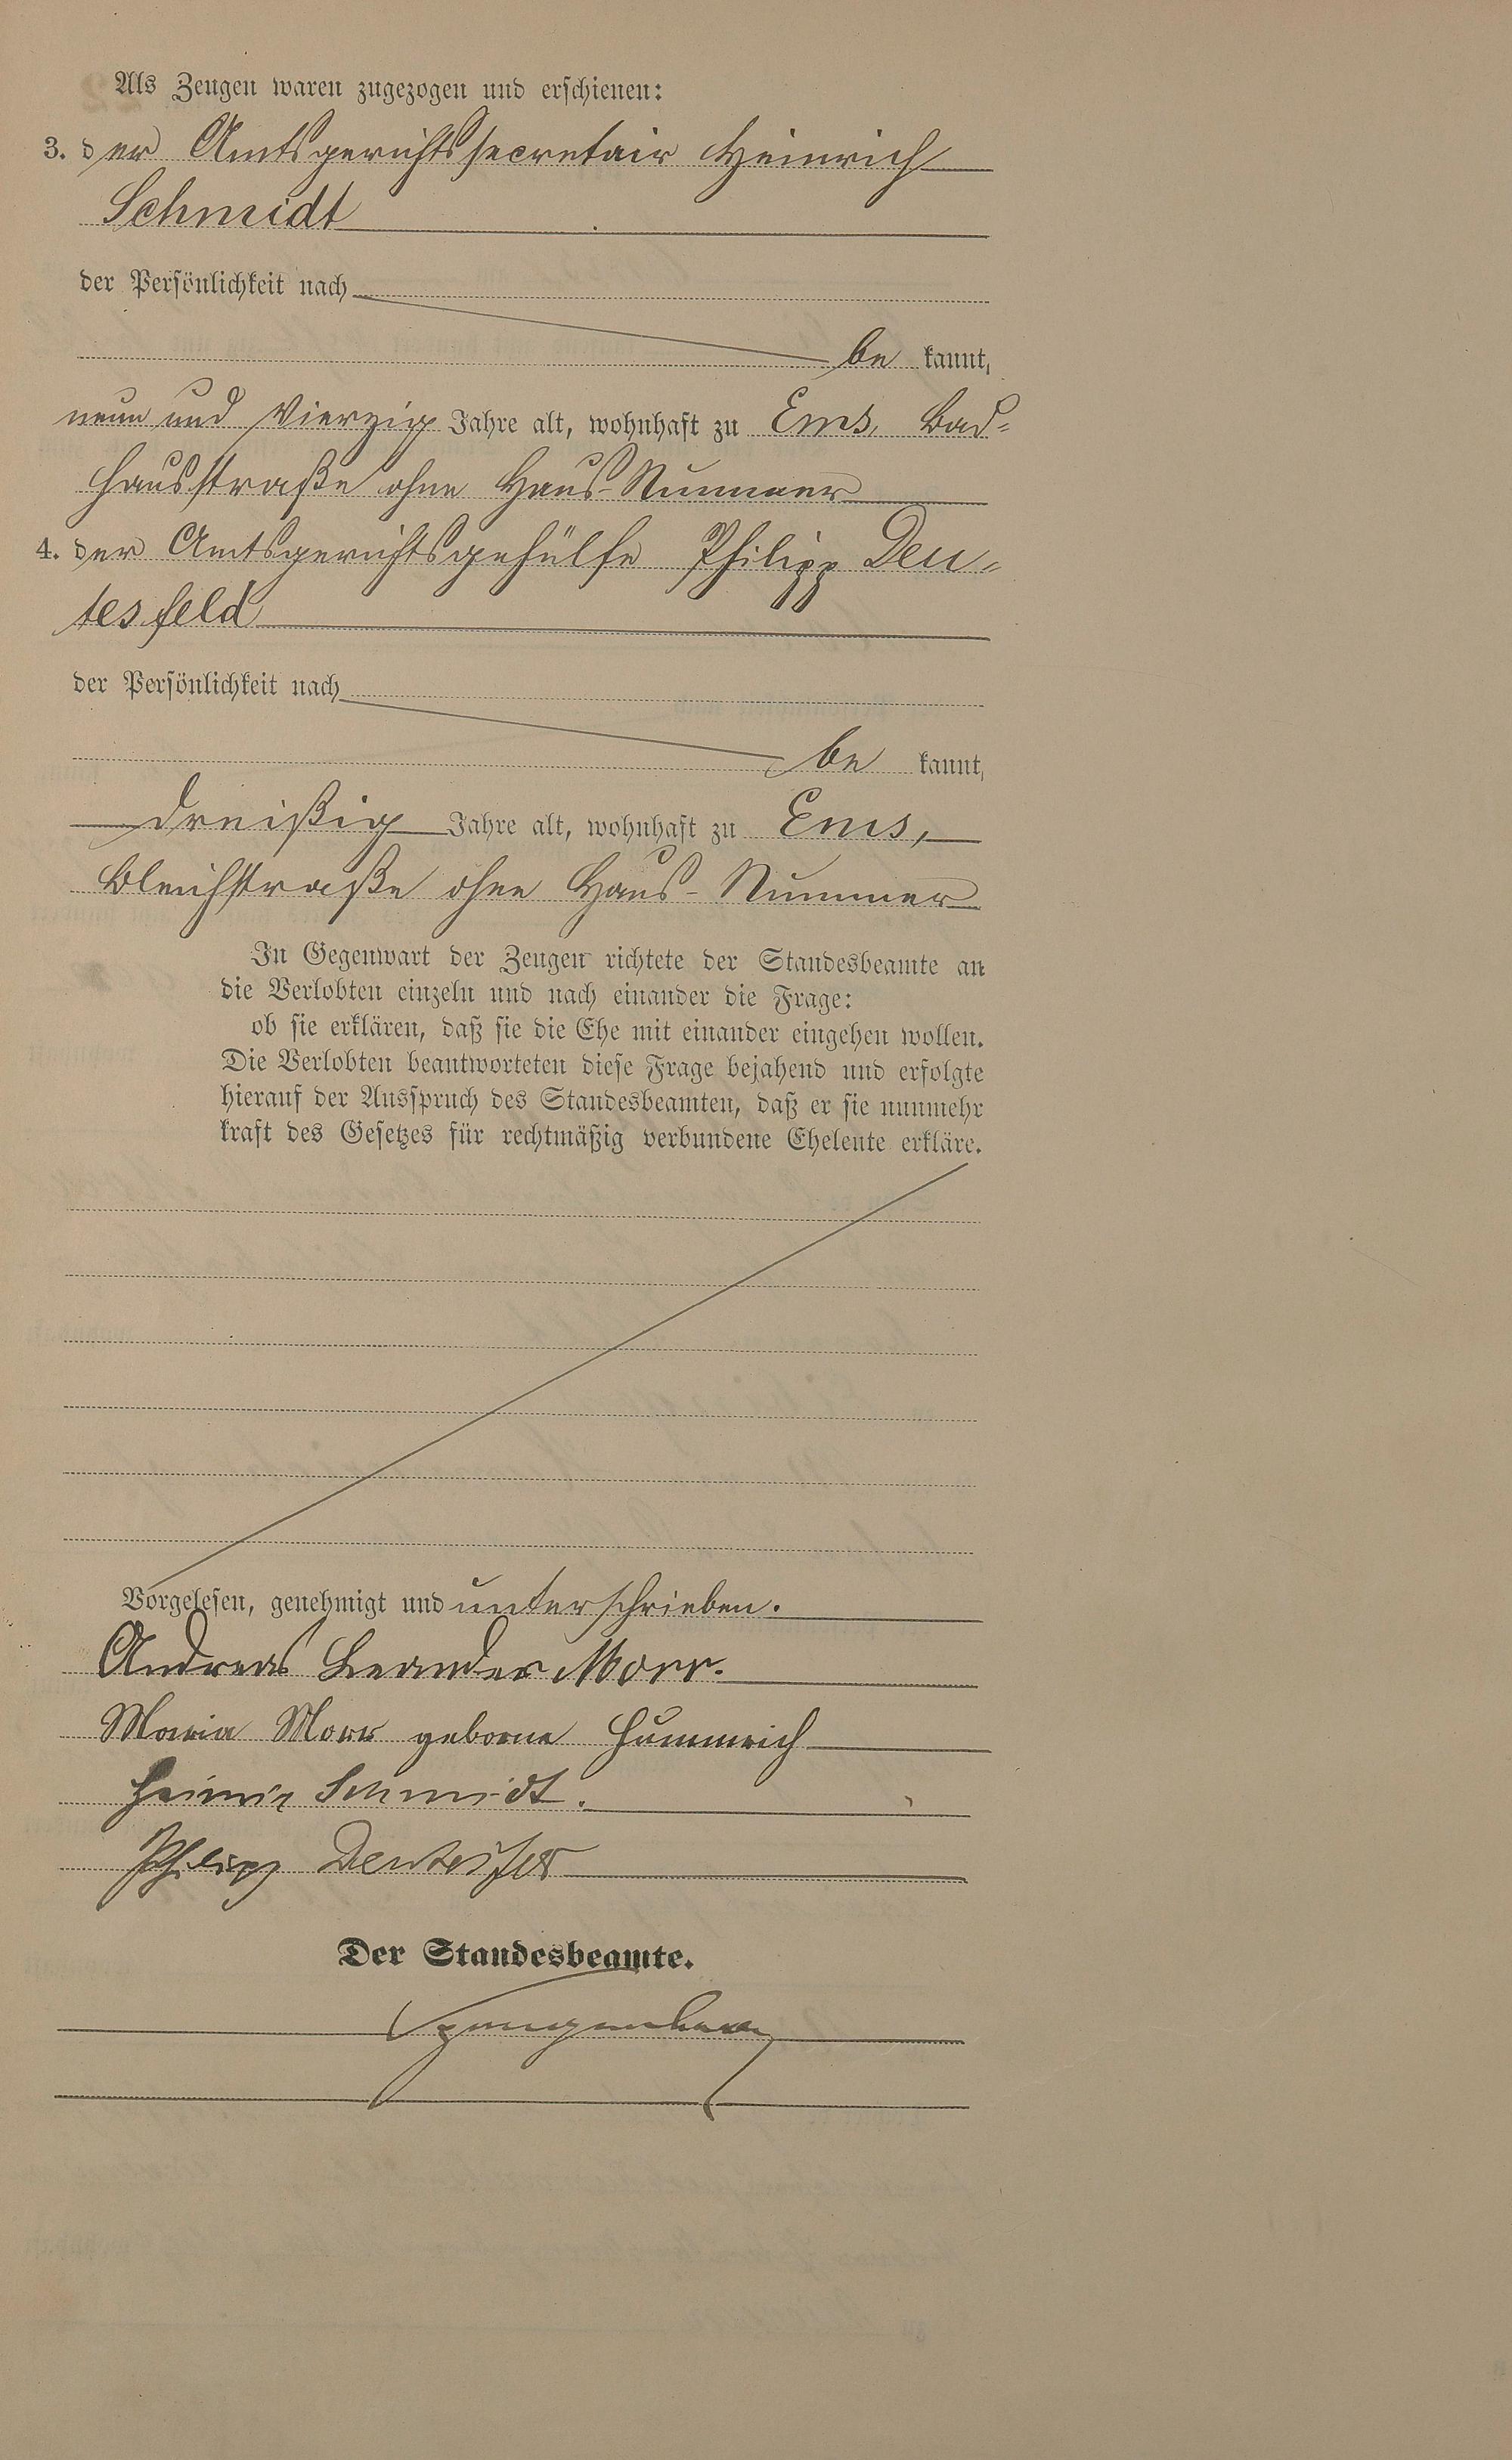 Als Zeugen waren zugezogen und erschienen:
3. der Amtsgerichtssecretair Heinrich
Schmidt
der Persönlichkeit nach
be kannt,
neun und Vierzig Jahre alt, wohnhaft zu Ems, Bad-
hausstraße ohne Haus-Nummer
4. der Amtsgerichtsgehülfe Philipp Deu-
tesfeld
der Persönlichkeit nach
be kannt,
dreißig Jahre alt, wohnhaft zu Ems,
Bleichstraße ohne Haus-Nummer
In Gegenwart der Zeugen richtete der Standesbeamte an
die Verlobten einzeln und nach einander die Frage:
ob sie erklären, daß sie die Ehe mit einander eingehen wollen.
Die Verlobten beantworteten diese Frage bejahend und erfolgte
hierauf der Ausspruch des Standesbeamten, daß er sie nunmehr
kraft des Gesetzes für rechtmäßig verbundene Eheleute erkläre.
Vorgelesen, genehmigt und unterschrieben.
Andreas Leander Morr.
Maria Morr geborne Hummrich
Heinrich Schmidt.
Philipp Deutesfeld
Der Standesbeamte.
Spangenberg